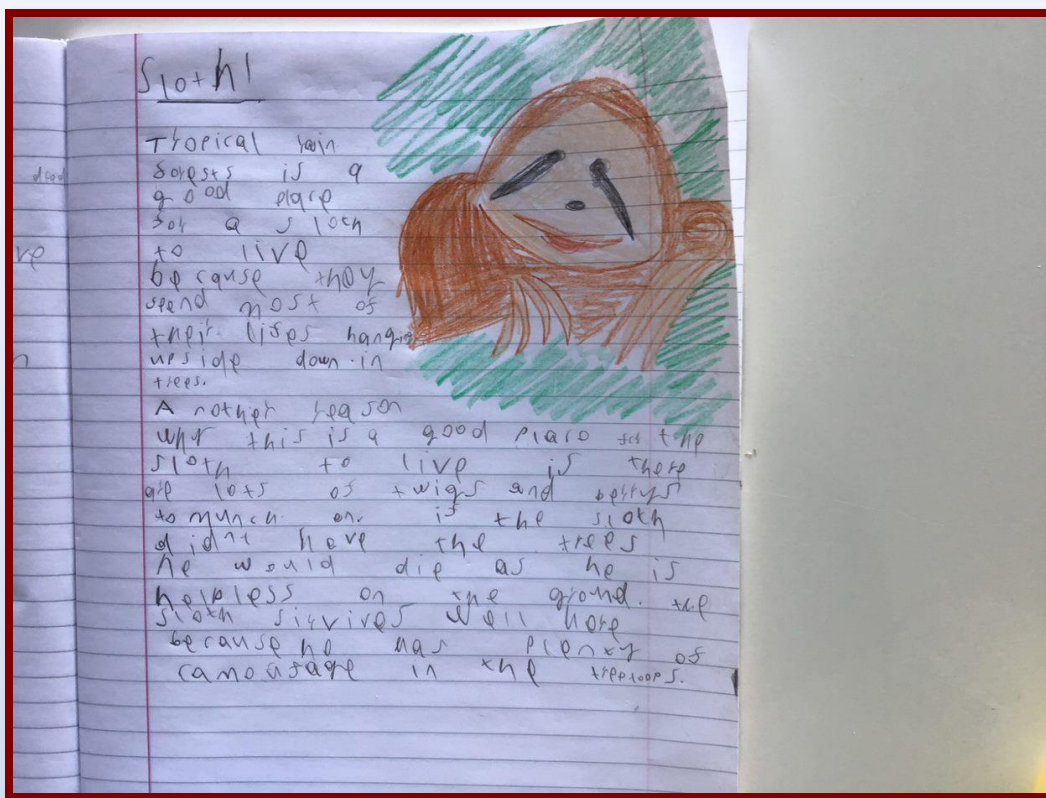 Sloth!
Tropical rain
forests is a
good place
for a sloth
to live
because they
spend most of
their lifes hanging
upside down in
trees.
A nother reason
why this is a good place for the
sloth to live is there
are lots of twigs and berrys
to munch on. if the sloth
didnt have the trees
he would die as he is
helpless on the ground. the
sloth sirvives well here
because he has plenty of
camoufage in the treetoops.
dead
ve
n